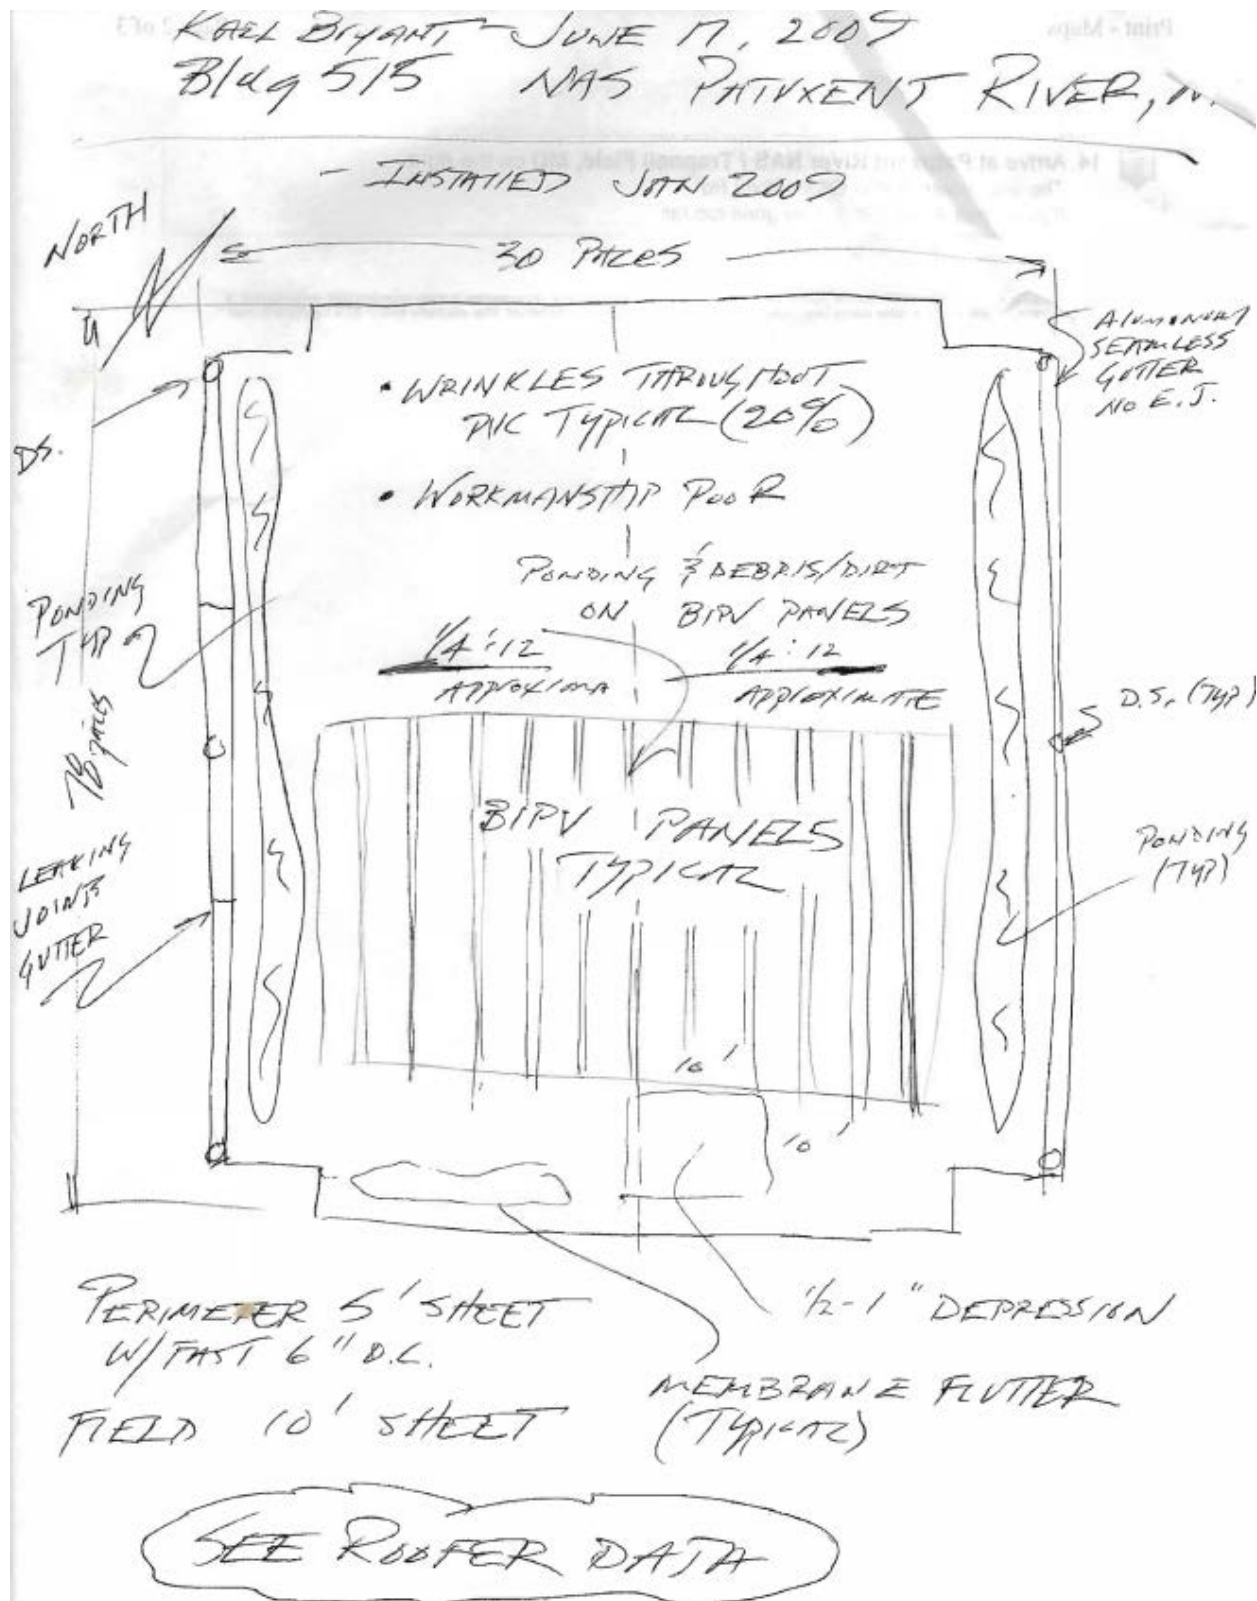 KAEL BRYANT - JUNE 17, 2009
Bldg 515 NAS PATUXENT RIVER,
- INSTALLED JAN 2009
NORTH
30 PACES
ALUMINUM
SEAMLESS
GUTTER
NO E.J.
• WRINKLES THROUGHOUT
PVC TYPICAL (20%)
DS.
• WORKMANSHIP POOR
PONDING & DEBRIS/DIRT
ON BIPV PANELS
PONDING
TYP
1/4:12
APPROXIMA
1/4:12
APPROXIMATE
D.S. (TYP)
78 PACES
BIPV PANELS
TYPICAL
PONDING
(TYP)
LEAKING
JOINTS
GUTTER
10'
10'
PERIMETER 5' SHEET
W/FAST 6" O.C.
FIELD 10' SHEET
1/2-1" DEPRESSION
MEMBRANE FLUTTER
(TYPICAL)
SEE ROOFER DATA